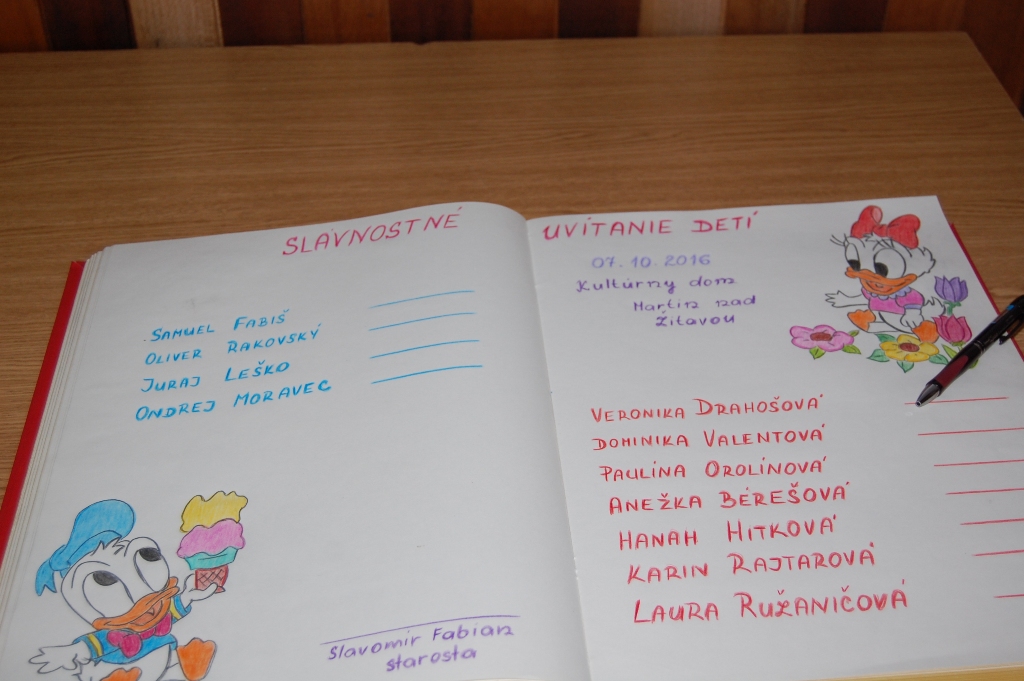 SLÁVNOSTNÉ
SAMUEL FABIŠ
OLIVER RAKOVSKÝ
JURAJ LEŠKO
ONDREJ MORAVEC
Slavomír Fabian
starosta
UVÍTANIE DETÍ
07.10.2016
Kultúrny dom
Martin nad
Žitavou
VERONIKA DRAHOŠOVÁ
DOMINIKA VALENTOVÁ
PAULÍNA OROLÍNOVÁ
ANEŽKA BÉREŠOVÁ
HANAH HITKOVÁ
KARIN RAJTAROVÁ
LAURA RUŽANIČOVÁ